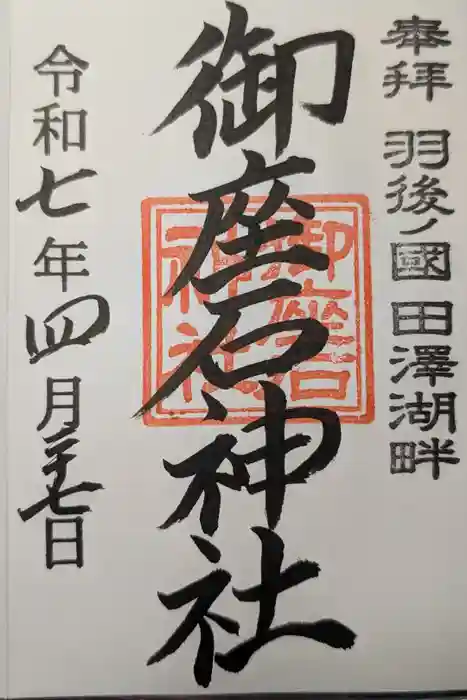 奉拝 羽後ノ國 田澤湖畔
御座石神社
御座石
神社
令和七年四月二十七日